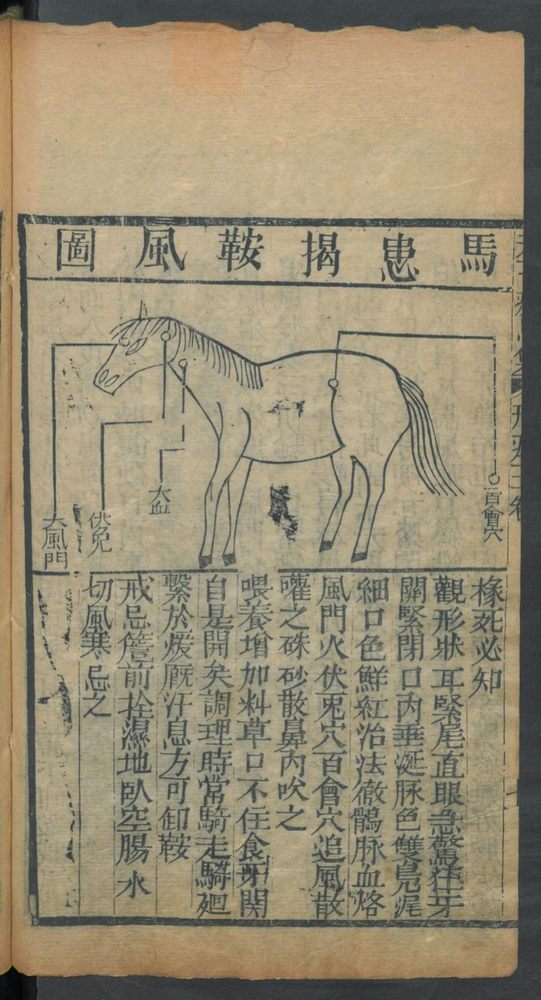 馬患揭鞍風圖
百會穴
大血
伏兔
大風門
椽死必知
觀形狀耳緊尾直眼急驚狂牙
關緊閉口內垂涎脉色雙鳧遲
細口色鮮紅治法徹鶻脉血烙
風門火伏兔穴百會穴追風散
嚾之硃砂散鼻內吹之
喂養增加料草口不住食牙関
自是開矣調理時常騎走騎廻
繋於煖厩汗息方可卸鞍
戒忌簷前拴濕地臥空腸水
切風寒忌之